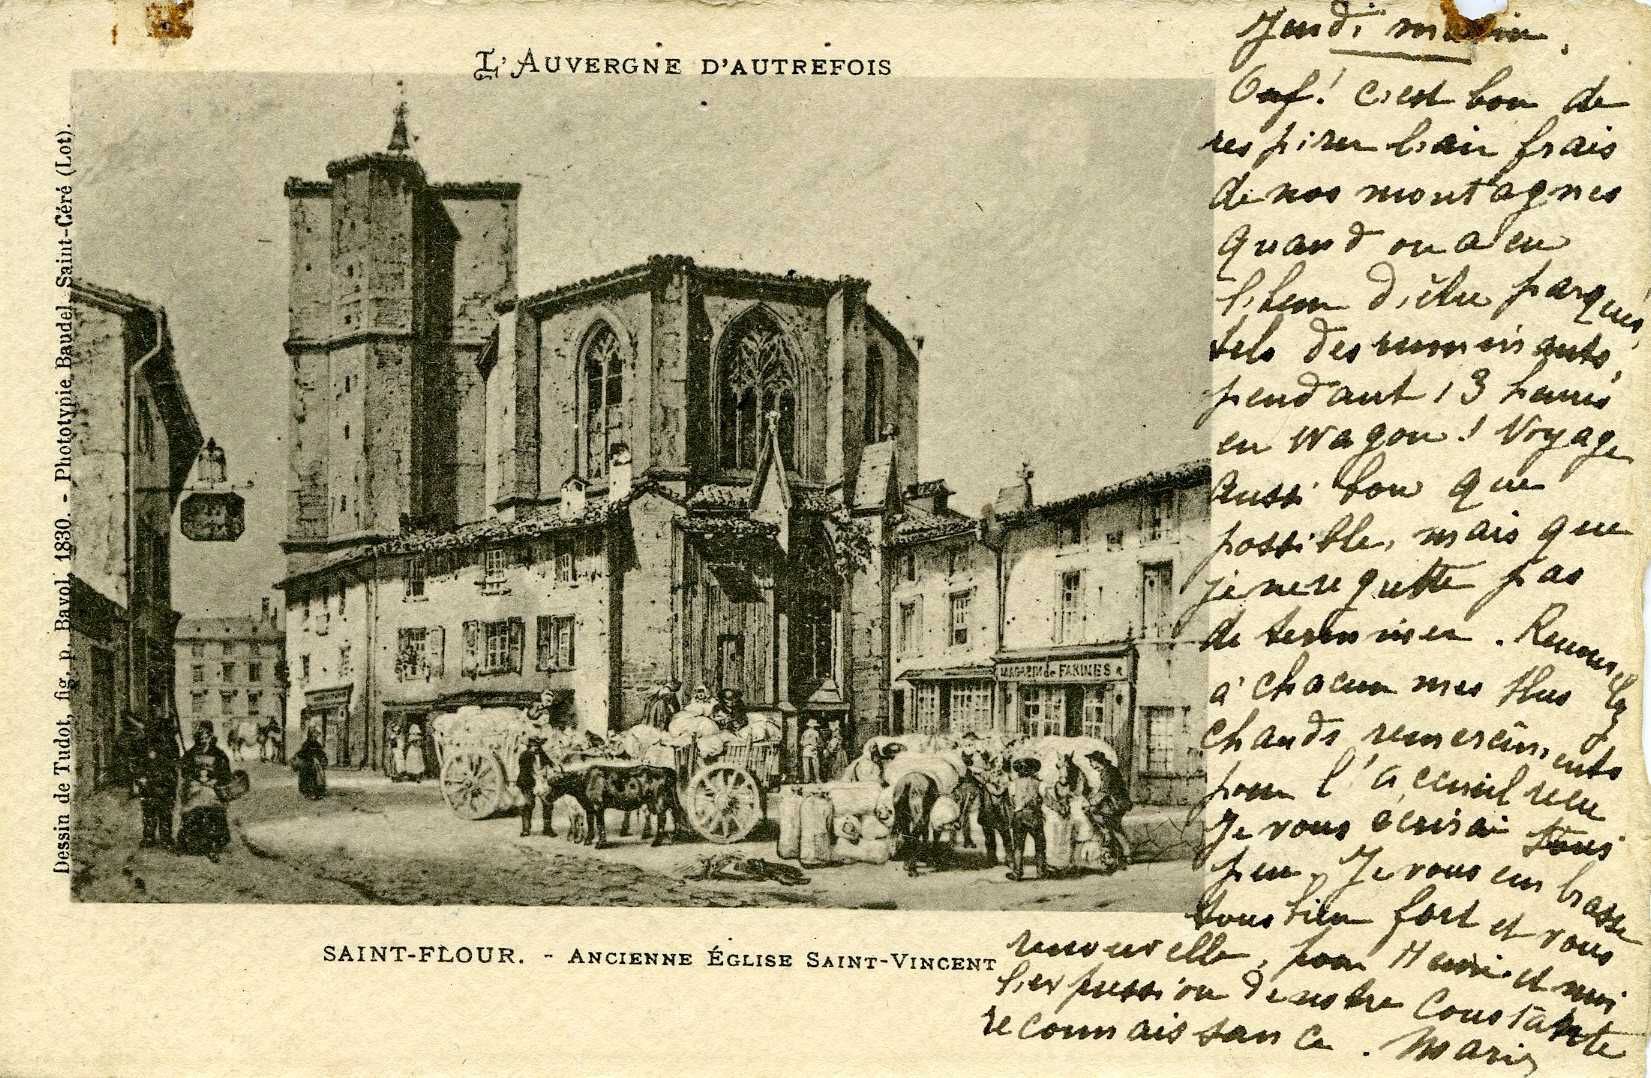 L'AUVERGNE D'AUTREFOIS
Dessin de Tudot, fig. p. Bayol, 1830. - Phototypie Baudel, Saint-Céré (Lot).
MAGASIN de FARINES
SAINT-FLOUR. - ANCIENNE ÉGLISE SAINT-VINCENT
Jeudi matin.
Ouf! c'est bon de
respirer l'air frais
de nos montagnes
quand on a eu
l'heur d'être parqués,
tels des ruminants,
pendant 13 heures
en wagon! Voyage
aussi bon que
possible, mais que
je ne regrette pas
de terminer. Renouvelez
à chacun mes plus
chauds remerciements
pour l'accueil reçu
Je vous écrirai sous
peu. Je vous embrasse
tous bien fort et vous
renouvelle, pour Henri et moi
l'expression de notre constante
reconnaissance. Marie